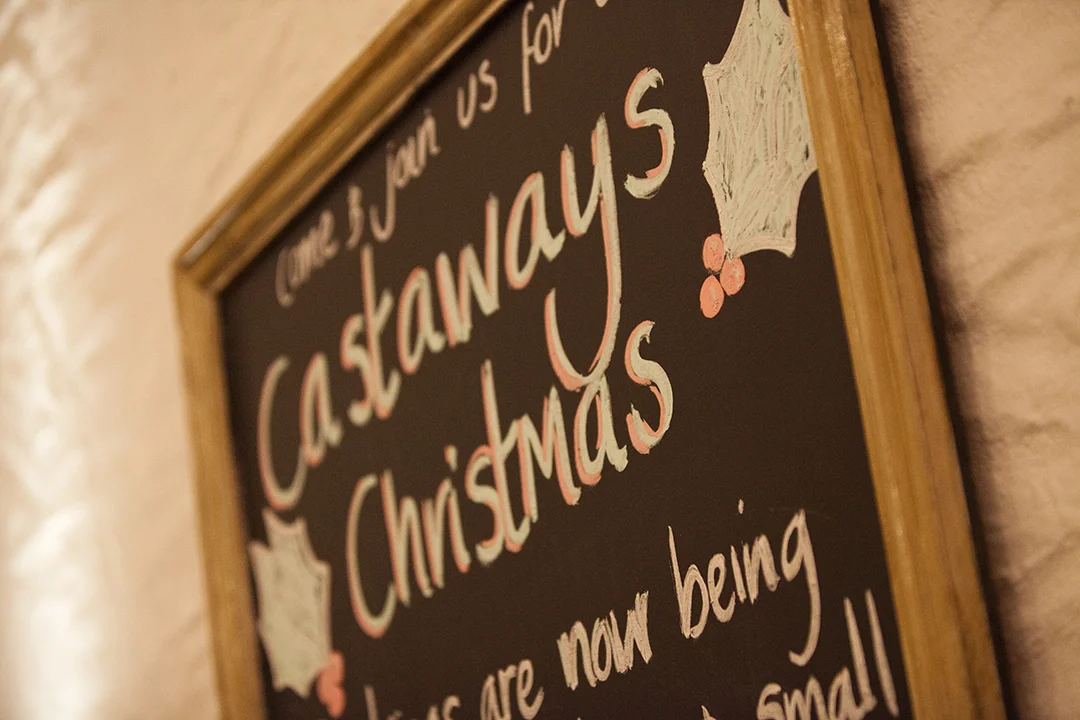 Come & join us for
Castaways
Christmas
are now being
small